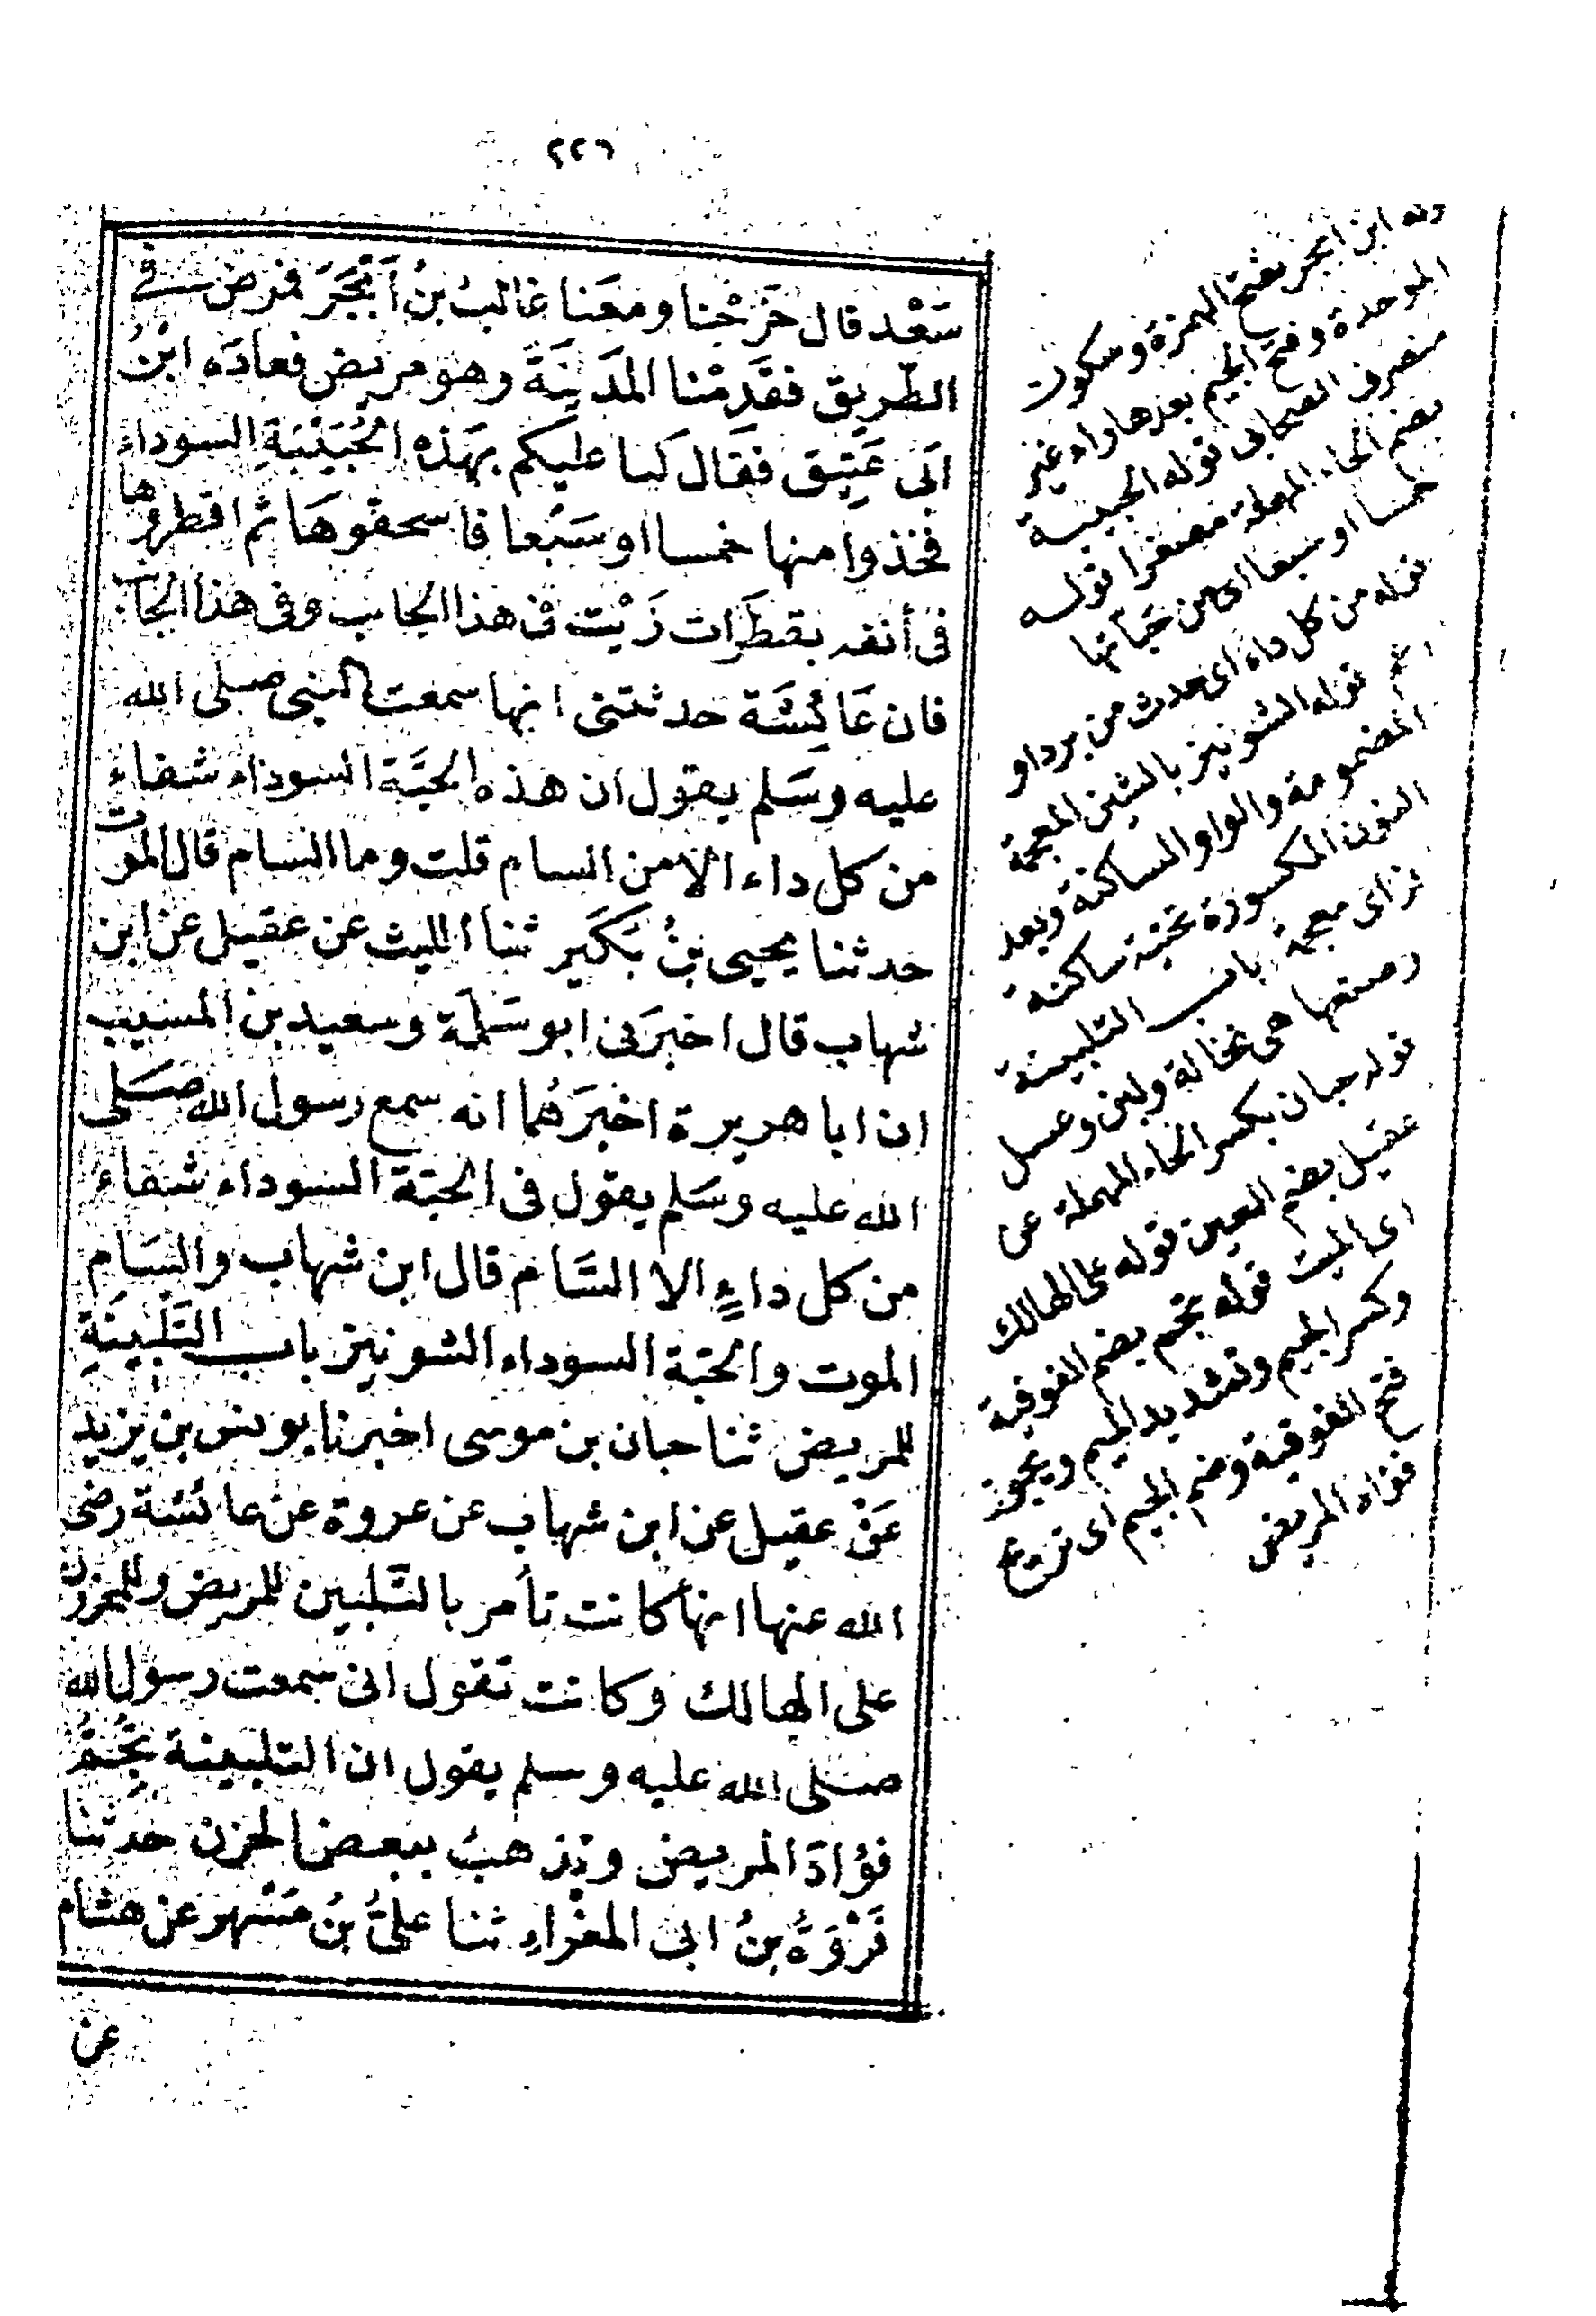 ٢٢٦
سَعْد قال خَرَجْنا ومعَنا غالبُ بنُ أَبْجَرَ فمرض في
الطّريق فقَدِمْنا المدَينَةَ وهو مريض فعادَه ابْنُ
ابَى عَتِيق فقَال لنا عليكم بهَذه الحُبَيْبَةِ السوداءِ
فخذوا منها خمسا او سَبْعا فاسحقوهَا ثم اقطروها
فى أنفه بقطَرَات زَيْت فى هذا الجانب وفى هذا الجانب
فان عَائِشَة حدثتنى انها سمعت النبى صلى الله
عليه وسَلم يقول ان هذه الحبَّة السوداء شفاءٌ
من كل داء الا من السام قلت وما السام قال الموت
حدثنا يحيى بنُ بُكَير ثنا الليث عن عقيل عن ابن
شهاب قال اخبرَنى ابو سَلمَة وسعيد بن المسيب
ان ابا هريرة اخبرَهُما انه سمع رسول الله صَلى
الله عليه وسَلم يقول فى الحبّة السوداء شفاء
من كل داءٍ الا السَّام قال ابن شهاب والسَام
الموت والحبّة السوداء الشونيز باب التَّلبينَةِ
للمريض ثنا حبان بن موسى اخبرنا يونس بن يزيد
عَنْ عقيل عن ابن شهاب عن عروة عن عائشة رضى
الله عنها انها كانت تأمر بالتَّلبين للمريض وللمحزون
على الهالك وكانت تقول انى سمعت رسول الله
صلى الله عليه وسلم يقول ان التلبينة تُجِمُّ
فؤادَ المريض وتذهبُ ببعض الحزن حدثنا
فَرْوَةُ بنُ ابى المغْراءِ ثنا علىُّ بنُ مُسْهِر عن هشام
عن
قوله ابن ابجر بفتح الهمزة وسكون
الموحدة وفتح الجيم بعدها راء غير
منصرف الصحابى قوله الحبيبة
بضم الحاء المهملة مصغرا قوله
خمسا او سبعا اى من حباتها
قوله من كل داء اى حدث من برد او
قوله الشونيز بالشين المعجمة
المضمومة والواو الساكنة وبعد
النون المكسورة تحتية ساكنة
زاى معجمة باب التلبينة
هى نخالة ولبن وعسل
قوله حبان بكسر الحاء المهملة عن
عقيل بضم العين قوله على الهالك
اى الميت قوله تجم بضم الفوقية
وكسر الجيم وتشديد الميم ويجوز
فتح الفوقية وضم الجيم اى تريح
فؤاد المريض